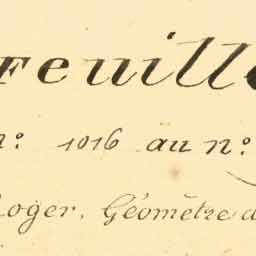 Feuille
n.º 1016 au n.º
Roger, Géomètre d